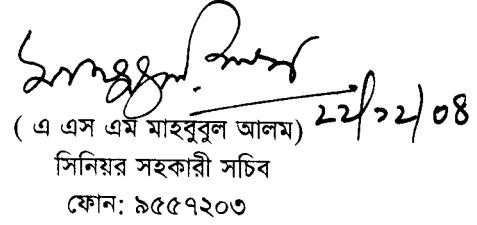 ২২/১২/০৪
( এ এস এম মাহবুবুল আলম)
সিনিয়র সহকারী সচিব
ফোন: ৯৫৫৭২০৩